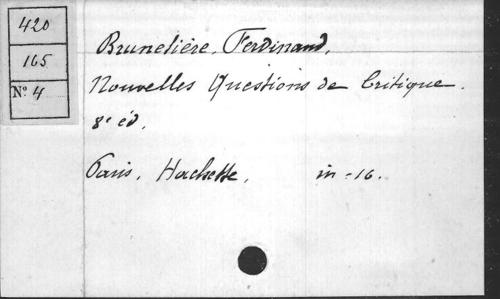 420
165
Nº 4
Brunetière, Ferdinand,
Nouvelles Questions de Critique.
8e éd.
Paris, Hachette, in-16.